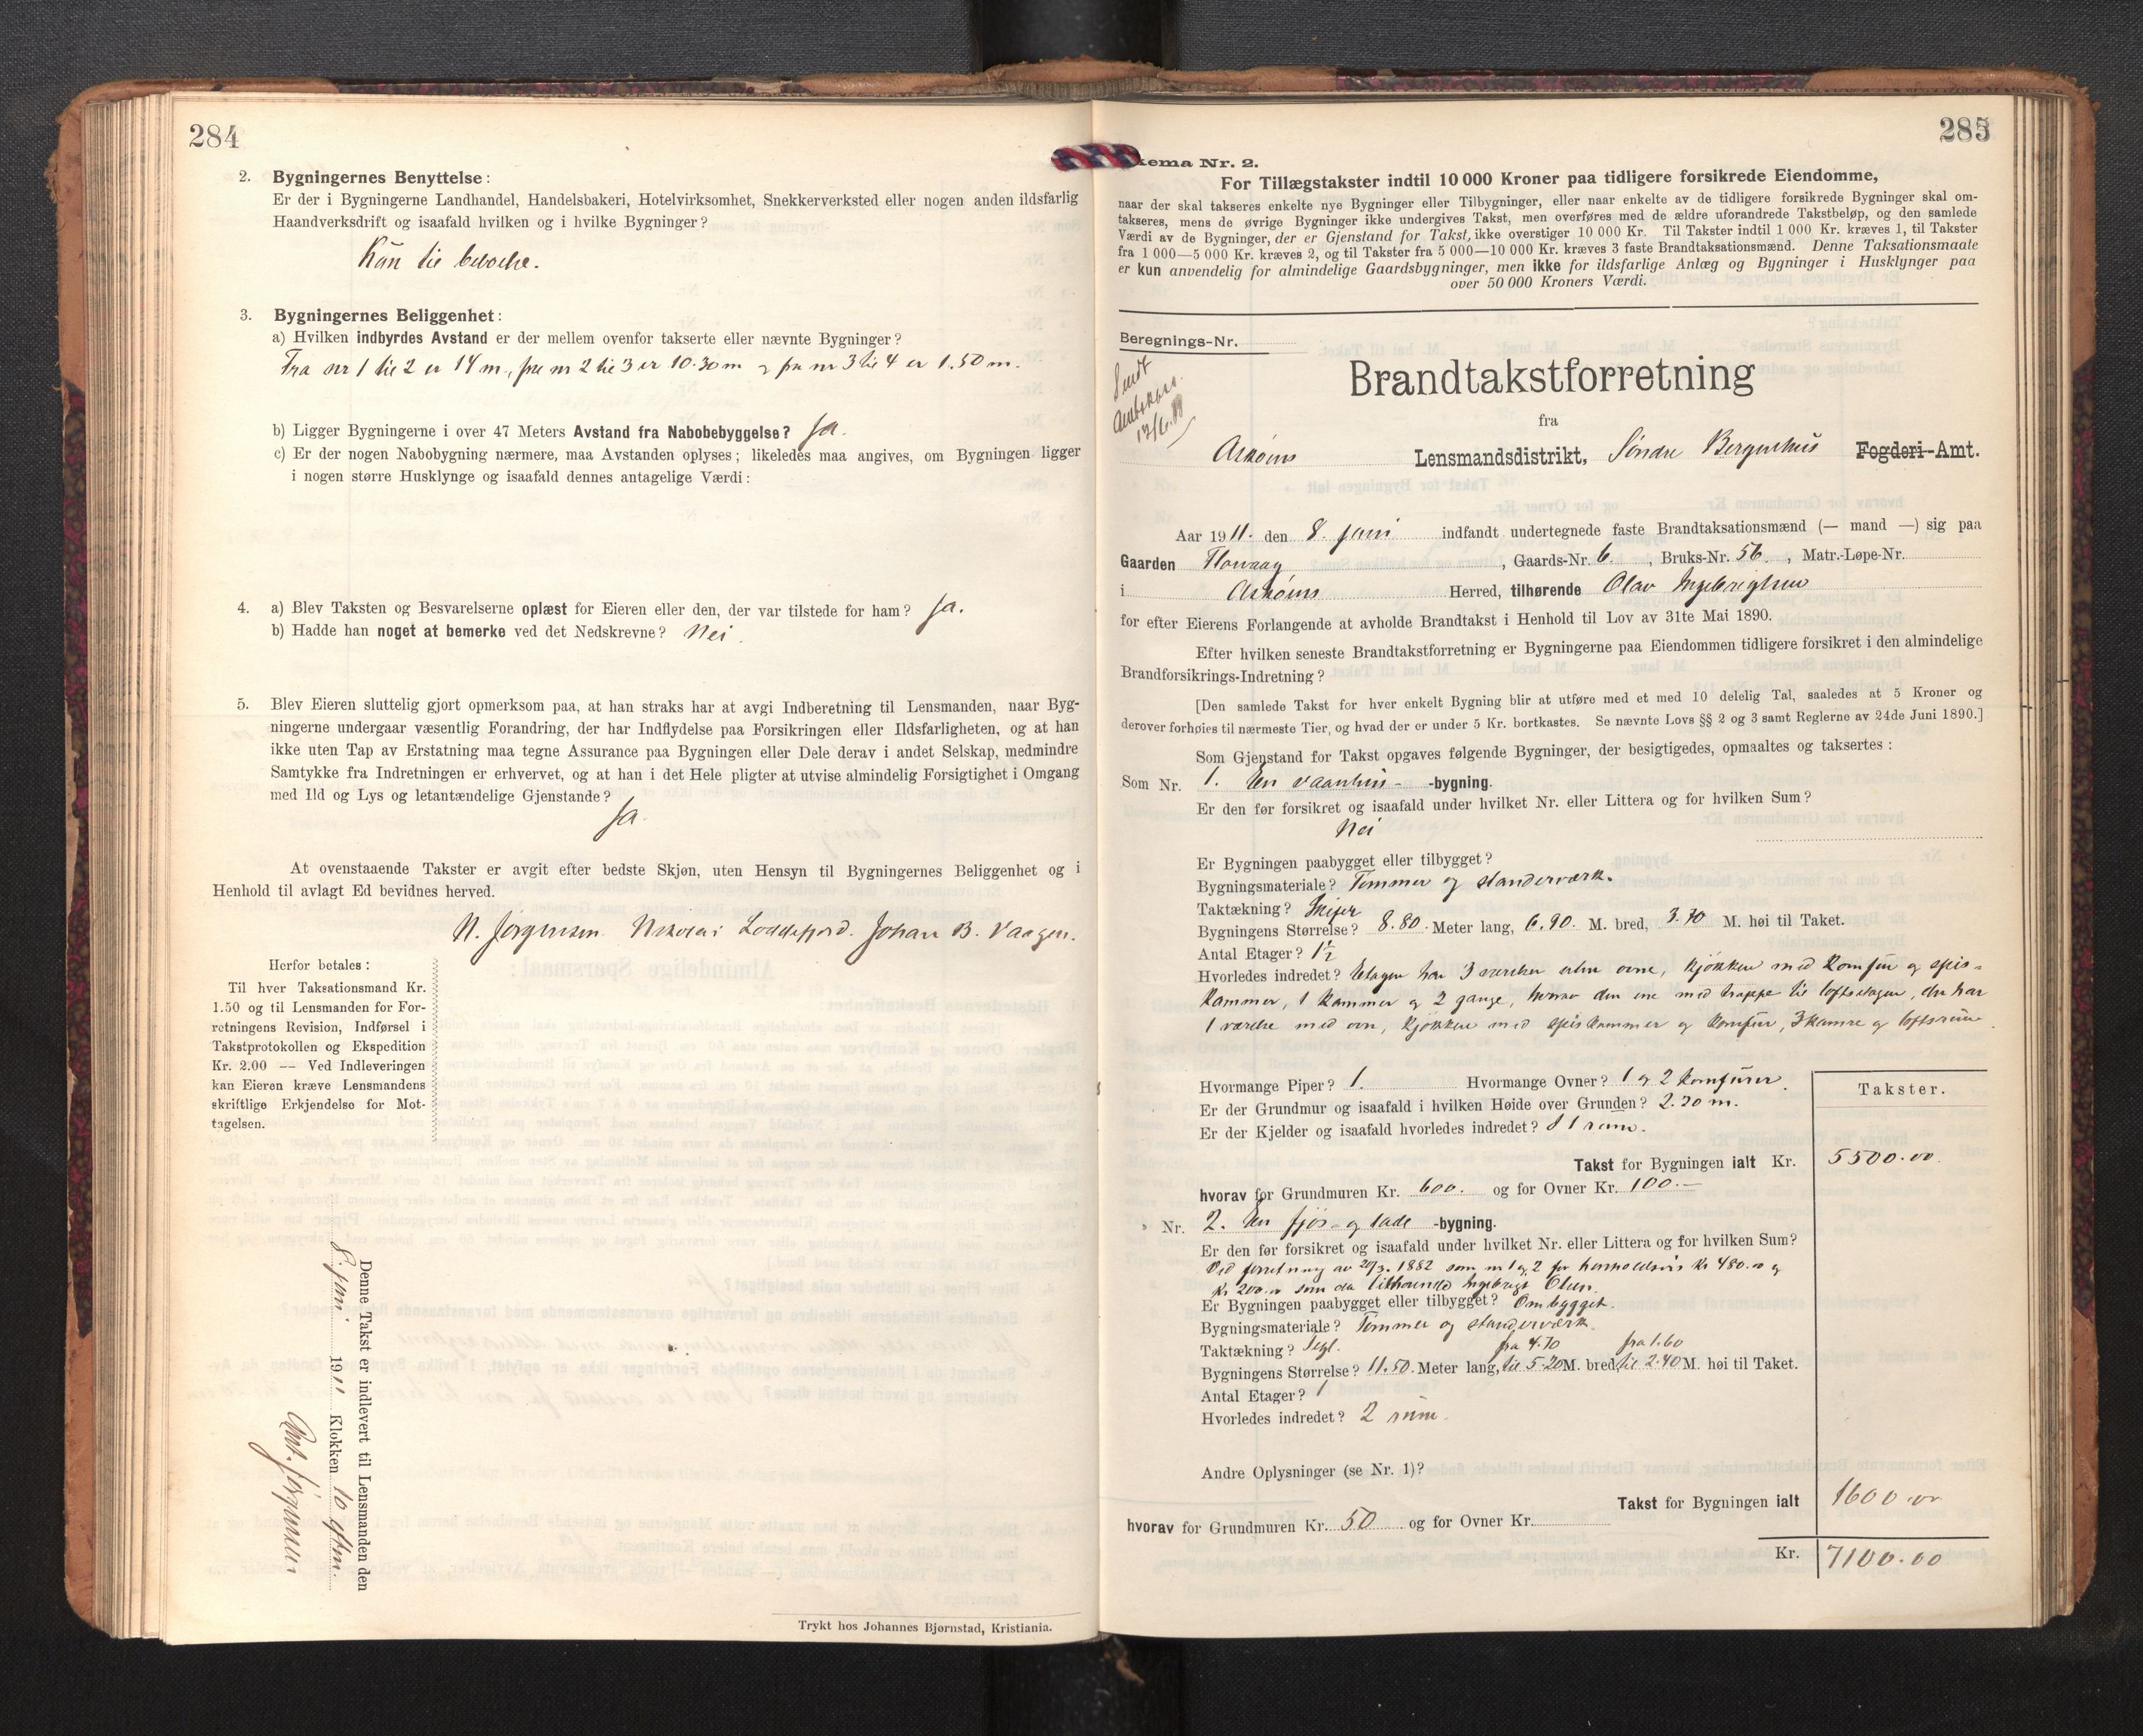 284
2. Bygningernes Benyttelse:
Er der i Bygningerne Landhandel, Handelsbakeri, Hotelvirksomhet, Snekkerverksted eller nogen anden ildsfarlig
Haandverksdrift og isaafald hvilken og i hvilke Bygninger?
Kun til beboelse.
3. Bygningernes Beliggenhet:
a) Hvilken indbyrdes Avstand er der mellem ovenfor takserte eller nævnte Bygninger?
Fra nr 1 til 2 er 14 m., fra nr 2 til 3 er 10.30 m og fra nr 3 til 4 er 1.50 m.
b) Ligger Bygningerne i over 47 Meters Avstand fra Nabobebyggelse? Ja.
c) Er der nogen Nabobygning nærmere, maa Avstanden oplyses; likeledes maa angives, om Bygningen ligger
i nogen større Husklynge og isaafald dennes antagelige Værdi:
4. a) Blev Taksten og Besvarelserne oplæst for Eieren eller den, der var tilstede for ham? Ja.
b) Hadde han noget at bemerke ved det Nedskrevne? Nei.
5. Blev Eieren sluttelig gjort opmerksom paa, at han straks har at avgi Indberetning til Lensmanden, naar Byg-
ningerne undergaar væsentlig Forandring, der har Indflydelse paa Forsikringen eller Ildsfarligheten, og at han
ikke uten Tap av Erstatning maa tegne Assurance paa Bygningen eller Dele derav i andet Selskap, medmindre
Samtykke fra Indretningen er erhvervet, og at han i det Hele pligter at utvise almindelig Forsigtighet i Omgang
med Ild og Lys og letantændelige Gjenstande?
Ja.
At ovenstaaende Takster er avgit efter bedste Skjøn, uten Hensyn til Bygningernes Beliggenhet og i
Henhold til avlagt Ed bevidnes herved.
N. Jørgensen. Nikolai Loddefjord. Johan B. Vaagen.
Herfor betales:
Til hver Taksationsmand Kr.
1.50 og til Lensmanden for For-
retningens Revision, Indførsel i
Takstprotokollen og Ekspedition
Kr. 2.00 — Ved Indleveringen
kan Eieren kræve Lensmandens
skriftlige Erkjendelse for Mot-
tagelsen.
Denne Takst er indlevert til Lensmanden den
8 juni 1911 Klokken 10 eftm.
Ant. Jørgensen
Trykt hos Johannes Bjørnstad, Kristiania.
285
kema Nr. 2.
For Tillægstakster indtil 10 000 Kroner paa tidligere forsikrede Eiendomme,
naar der skal takseres enkelte nye Bygninger eller Tilbygninger, eller naar enkelte av de tidligere forsikrede Bygninger skal om-
takseres, mens de øvrige Bygninger ikke undergives Takst, men overføres med de ældre uforandrede Takstbeløp, og den samlede
Værdi av de Bygninger, der er Gjenstand for Takst, ikke overstiger 10 000 Kr. Til Takster indtil 1 000 Kr. kræves 1, til Takster
fra 1 000—5 000 Kr. kræves 2, og til Takster fra 5 000—10 000 Kr. kræves 3 faste Brandtaksationsmænd. Denne Taksationsmaate
er kun anvendelig for almindelige Gaardsbygninger, men ikke for ildsfarlige Anlæg og Bygninger i Husklynger paa
over 50 000 Kroners Værdi.
Beregnings-Nr.
Sendt
12/6. 11
Brandtakstforretning
fra
Askøens Lensmandsdistrikt, Søndre Bergenhus Fogderi-Amt.
Aar 1911. den 8. juni indfandt undertegnede faste Brandtaksationsmænd (— mand —) sig paa
Gaarden Florvaag, Gaards-Nr. 6, Bruks-Nr. 56, Matr.-Løpe-Nr.
i Askøens Herred, tilhørende Olav Ingebrigtsen
for efter Eierens Forlangende at avholde Brandtakst i Henhold til Lov av 31te Mai 1890.
Efter hvilken seneste Brandtakstforretning er Bygningerne paa Eiendommen tidligere forsikret i den almindelige
Brandforsikrings-Indretning?
[Den samlede Takst for hver enkelt Bygning blir at utføre med et med 10 delelig Tal, saaledes at 5 Kroner og
derover forhøies til nærmeste Tier, og hvad der er under 5 Kr. bortkastes. Se nævnte Lovs §§ 2 og 3 samt Reglerne av 24de Juni 1890.]
Som Gjenstand for Takst opgaves følgende Bygninger, der besigtigedes, opmaaltes og taksertes:
Som Nr. 1. En vaanhus- -bygning.
Er den før forsikret og isaafald under hvilket Nr. eller Littera og for hvilken Sum?
Nei
Er Bygningen paabygget eller tilbygget?
Bygningsmateriale? Tømmer og standerværk.
Taktækning? Skifer
Bygningens Størrelse? 8.80. Meter lang, 6.90. M. bred, 3.70 M. høi til Taket.
Antal Etager? 1½
Hvorledes indredet? Etagen har 3 værelser uten ovne, kjøkken med komfur og spis-
kammer, 1 kammer og 2 gange, hvorav den ene med trappe til loftsetagen, der har
1 værelse med ovn, kjøkken med spiskammer og komfur, 3 kamre og loftsrum.
Hvormange Piper? 1. Hvormange Ovner? 1 og 2 komfurer.
Er der Grundmur og isaafald i hvilken Høide over Grunden? 2.20 m.
Er der Kjelder og isaafald hvorledes indredet? I 1 rum.
Takster.
Takst for Bygningen ialt Kr. 5500.00
hvorav for Grundmuren Kr. 600. og for Ovner Kr. 100.—
» Nr. 2. En fjøs- og lade -bygning.
Er den før forsikret og isaafald under hvilket Nr. eller Littera og for hvilken Sum?
Ved forretning av 20/3. 1882 som nr 1 og 2 for henholdsvis kr 480.00 og
kr 200.00 som da tilhørende Ingebrigt Olsen.
Er Bygningen paabygget eller tilbygget? Ombygget.
Bygningsmateriale? Tømmer og standerværk.
Taktækning? Tegl. fra 4.70 fra 1.60
Bygningens Størrelse? 11.50. Meter lang, til 5.20 M. bred, til 2.40 M. høi til Taket.
Antal Etager? 1
Hvorledes indredet? 2 rum.
Andre Oplysninger (se Nr. 1)?
Takst for Bygningen ialt 1600.00
hvorav for Grundmuren Kr. 50 og for Ovner Kr.
Kr. 7100.00